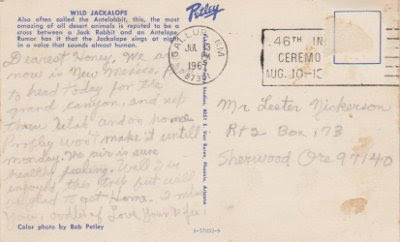 WILD JACKALOPE
Also often called the Antelabbit, this, the most
amazing of all desert animals is reputed to be a
cross between a Jack Rabbit and an Antelope.
Rumor has it that the Jackalope sings at night
in a voice that sounds almost human.
Dearest Honey. We are
now in New Mexico.
to head today for the
grand Canyon, and up
then Utah and on home
won't make it untill
monday. We air is sure
healthy feeling. Well I've
injoyed this trip but will
be glad to get home. I miss
You, oodles of Love Your Wife.
Color photo by Bob Petley
Petley
Phoenix, Arizona
S-57052-9
GALLUP, NM
JUL 13
1967
87301
46TH IN
CEREMO
AUG. 10-1
Mr Lester Nickerson
Rt 2 Box 173
Sherwood Ore 97140